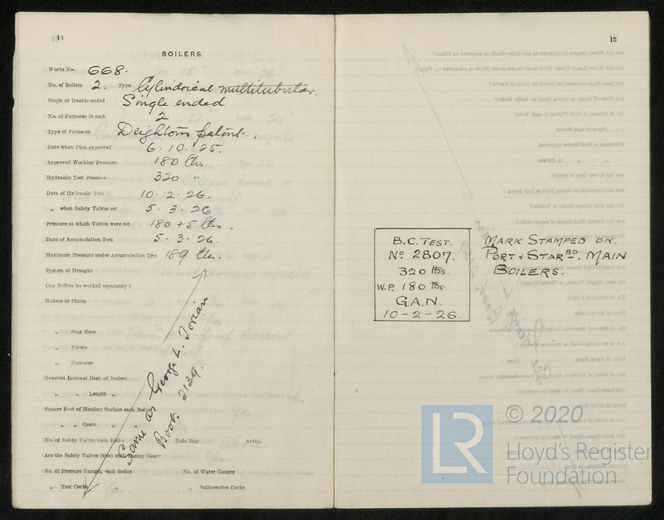 14
BOILERS.
Works No. 668.
No. of Boilers 2. Type Cylindrical multitubular.
Single or Double-ended Single ended
No. of Furnaces in each 2
Type of Furnaces Deighton patent.
Date when Plan approved 6.10.25.
Approved Working Pressure 180 lbs.
Hydraulic Test Pressure 320 "
Date of Hydraulic Test 10.2.26.
" when Safety Valves set 5.3.26
Pressure at which Valves were set 180 + 5 lbs.
Date of Accumulation Test 5.3.26.
Maximum Pressure under Accumulation Test 189 lbs.
System of Draught
Can Boilers be worked separately?
Makers of Plates
" Stay Bars
" Rivets
" Furnaces
Greatest Internal Diam. of Boilers
" " Length "
Square Feet of Heating Surface each Boiler
" " Grate " "
No. of Safety Valves each Boiler Rule Diam. Actual
Are the Safety Valves fitted with Easing Gear?
No. of Pressure Gauges, each Boiler No. of Water Gauges
" Test Cocks " " Salinometer Cocks "
Same as George L. Torian
Book 2139.
15
B.C. TEST.
No 2807.
320 lbs.
W.P. 180 lbs.
G.A.N.
10-2-26.
MARK STAMPED ON
PORT & STARBD. MAIN
BOILERS.
LR
© 2020
Lloyd's Register
Foundation